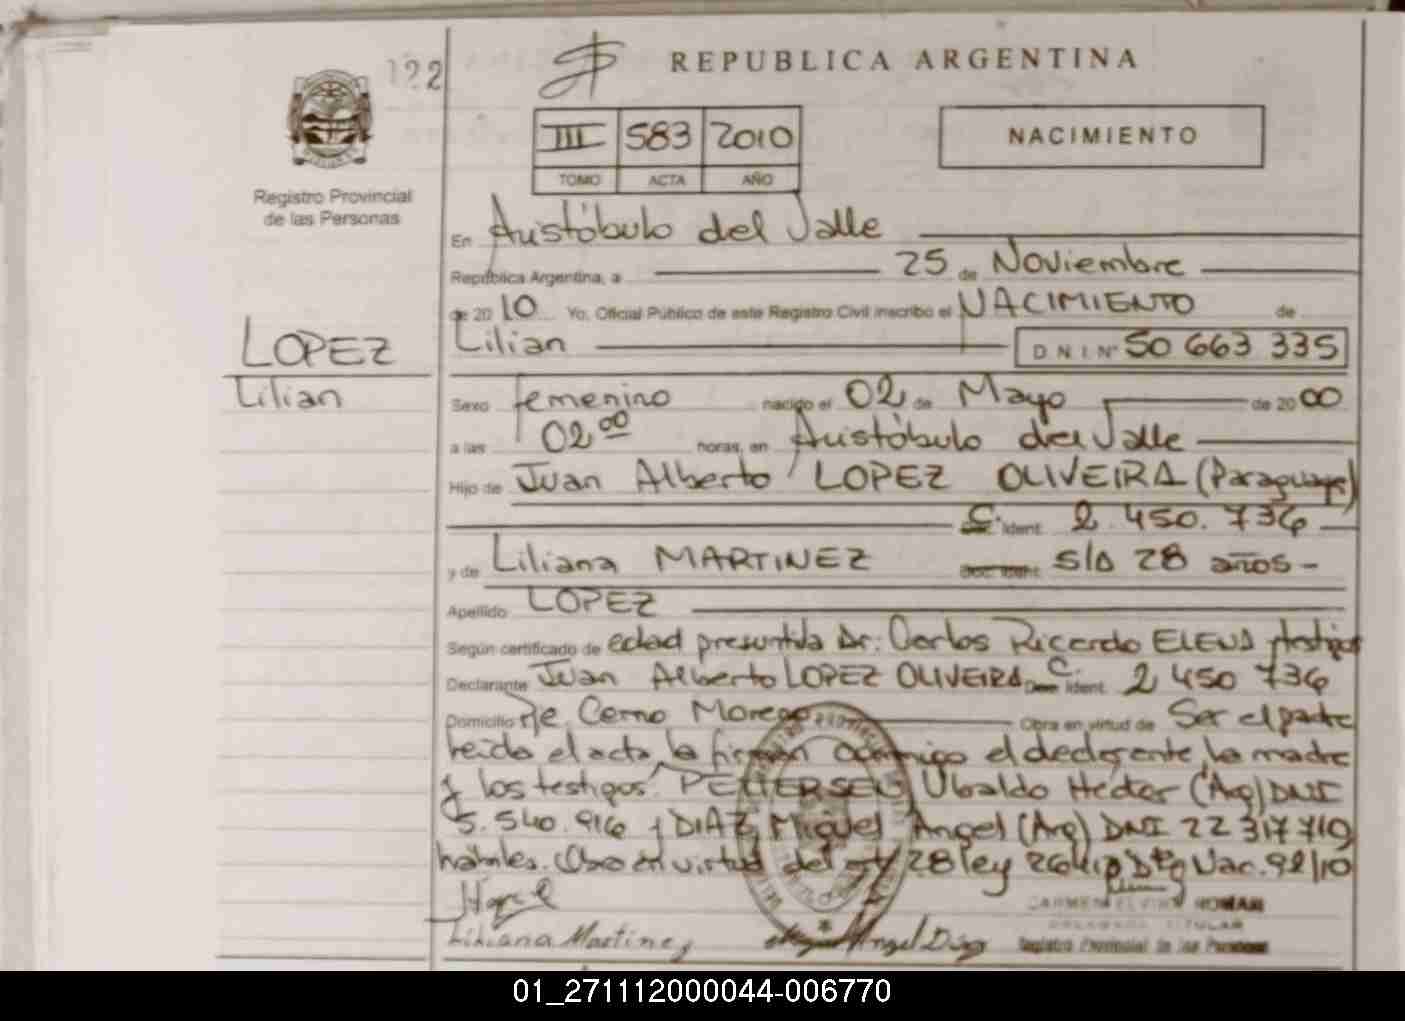 122
REPUBLICA ARGENTINA
III 583 2010
TOMO ACTA AÑO
NACIMIENTO
Registro Provincial
de las Personas
En Aristóbulo del Valle
República Argentina, a 25 de Noviembre
de 2010 Yo, Oficial Público de este Registro Civil inscribo el NACIMIENTO de
LOPEZ
Lilian
Lilian D.N.I. Nº 50 663 335
Sexo femenino nacido el 02 de Mayo de 2000
a las 02 00 horas, en Aristóbulo del Valle
Hijo de Juan Alberto LOPEZ OLIVEIRA (Paraguayo)
C. Ident. 2.450.736
y de Liliana MARTINEZ Doc. Ident. S/D 28 años-
Apellido LOPEZ
Según certificado de edad presuntiva Dr. Carlos Ricardo ELENA y testigos
Declarante Juan Alberto LOPEZ OLIVEIRA C. Doc. Ident. 2 450 736
Domicilio Pje Cerro Moreno Obra en virtud de Ser el padre
leída el acta, la firman conmigo el declarante, la madre
y los testigos: PETTERSEN Ubaldo Héctor (Arg) DNI
5.540.916 y DIAZ, Miguel Angel (Arg) DNI 22 317 710
hábiles. Obra en virtud del 28 ley Nac. 92/10
Liliana Martinez
Miguel Angel Diaz
CARMEN ROMAN
TITULAR
Registro Provincial de las Personas
01_271112000044-006770